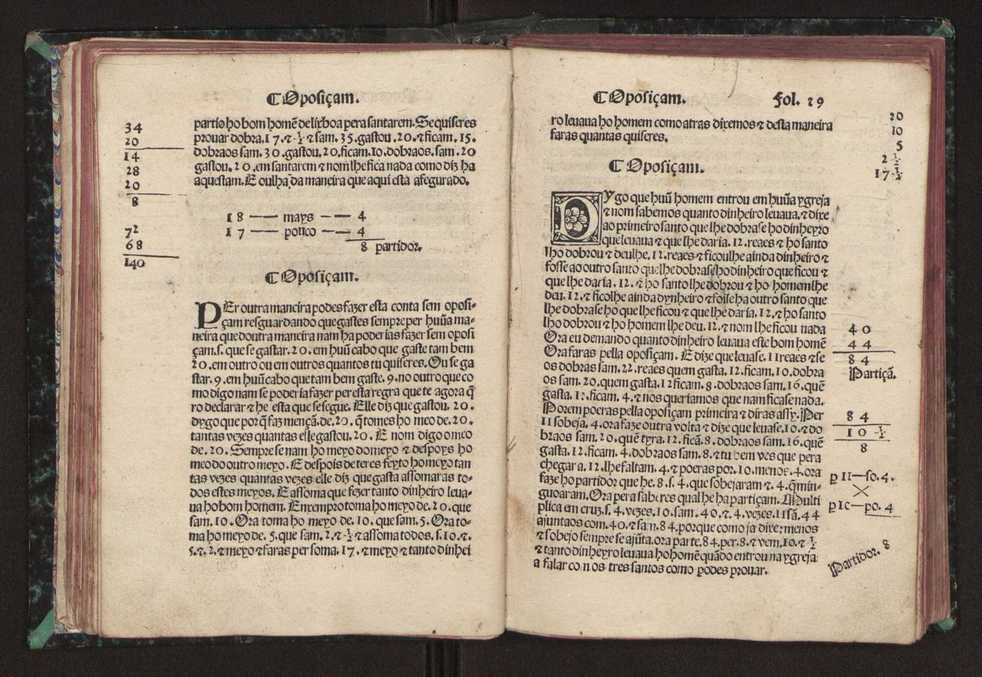 Oposiçam.
34
20
14
28
20
8
72
68
140
partio ho bom homẽ de lixboa pera santarem. Se quiseres
prouar dobra. 17. ⁊ ½ ⁊ sam. 35. gastou. 20. ⁊ ficam. 15.
dobraos sam. 30. gastou. 20. ficam. 10. dobraos. sam. 20
gastou. 20. em santarem ⁊ nom lhe fica nada como diz ha
aquestam. E oulha da maneira que aqui esta asegurado.
18 — mays — 4
17 — pouco — 4
8 partidor.
Oposiçam.
PEr outra maneira podes fazer esta conta sem oposi-
çam resguardando que gastes sempre per huũa ma-
neira que doutra maneira nam ha poderias fazer sem oposi
çam. s. que se gastar. 20. em huũ cabo que gaste tam bem
20. em outro ou em outros quantos tu quiseres. Ou se ga
star. 9. em huũ cabo que tam bem gaste. 9. no outro que co
mo digo nam se poderia fazer per esta regra que te agora q̃
ro declarar ⁊ he esta que se segue. Elle diz que gastou. 20.
dygo que por q̃ faz mençã. de. 20. q̃ tomes ho meo de. 20.
tantas vezes quantas elle gastou. 20. E nom digo o meo
de. 20. Sempre se nam ho meyo do meyo ⁊ despoys ho
meo do outro meyo. E despois de teres feyto ho meyo tan
tas vezes quantas vezes elle diz que gasta assomaras to-
dos estes meyos. E assoma que fezer tanto dinheiro leua-
ua ho bom homem. Enxempro toma ho meyo de. 20. que
sam. 10. Ora toma ho meyo de. 10. que sam. 5. Ora to-
ma ho meyo de. 5. que sam. 2. ⁊ ½ ⁊ assoma todos. s. 10. ⁊.
5. ⁊. 2. ⁊ meyo ⁊ faras per soma. 17. ⁊ meyo ⁊ tanto dinhei
Oposiçam. Fol. 29
ro leuaua ho homem como atras dixemos ⁊ desta maneira
faras quantas quiseres.
20
10
5
2 ½
17 ½
Oposiçam.
DYgo que huũ homem entrou em huũa ygreja
⁊ nom sabemos quanto dinheiro leuaua, ⁊ dixe
ao primeiro santo que lhe dobrase ho dinheyro
que leuaua ⁊ que lhe daria. 12. reaes ⁊ ho santo
lho dobrou ⁊ deulhe. 12. reaes ⁊ ficoulhe ainda dinheiro ⁊
fosse ao outro santo que lhe dobrase ho dinheiro que ficou ⁊
que lhe daria. 12. ⁊ ho santo lhe dobrou ⁊ ho homem lhe
deu. 12. ⁊ ficolhe ainda dynheiro ⁊ foise ha outro santo que
lhe dobrase ho que lhe ficou ⁊ que lhe daria. 12. ⁊ ho santo
lho dobrou ⁊ ho homem lhe deu. 12. ⁊ nom lhe ficou nada
Ora eu demando quanto dinheiro leuaua este bom homẽ
Ora faras pella oposiçam. E dize que leuase. 11 reaes ⁊ se
os dobras sam. 22. reaes quem gasta. 12. ficam. 10. dobra
os sam. 20. quem gasta. 12 ficam. 8. dobraos sam. 16. quẽ
gasta. 12. ficam. 4. ⁊ nos queriamos que nam ficase nada.
Porem poeras pella oposiçam primeira ⁊ diras assy. Per
11 sobeja. 4. ora faze outra volta ⁊ dize que leuase. 10. ⁊ do
braos sam. 20. quẽ tyra. 12. ficã. 8. dobraos sam. 16. quẽ
gasta. 12. ficam. 4. dobraos sam. 8. ⁊ tu bem ves que pera
chegar a. 12. lhe faltam. 4. ⁊ poeras po. 10. menos. 4. ora
faze ho partidor que he. 8. s. 4. que sobejaram ⁊. 4. q̃ min-
guoaram. Ora pera saberes qual he ha partiçam. Multi
plica em cruz. s. 4. vezes. 10. sam. 40. ⁊. 4. vezes. 11 sã. 44
ajuntaos com. 40. ⁊ sam. 84. porque como ja dixe: menos
⁊ sobejo sempre se ajũta. ora parte. 84. per. 8. ⁊ vem. 10. ⁊ ½
⁊ tanto dinheyro leuaua ho homẽ quãdo entrou na ygreja
a falar com os tres santos como podes prouar.
40
44
84
Partiçã.
84
10 ½
8
p 11 — so. 4.
p 10 — po. 4
Partidor. 8